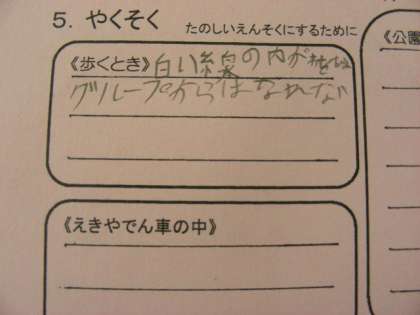 5. やくそく
たのしいえんそくにするために
《歩くとき》白い線の内が
グループからはなれな
《えきやでん車の中》
《公園